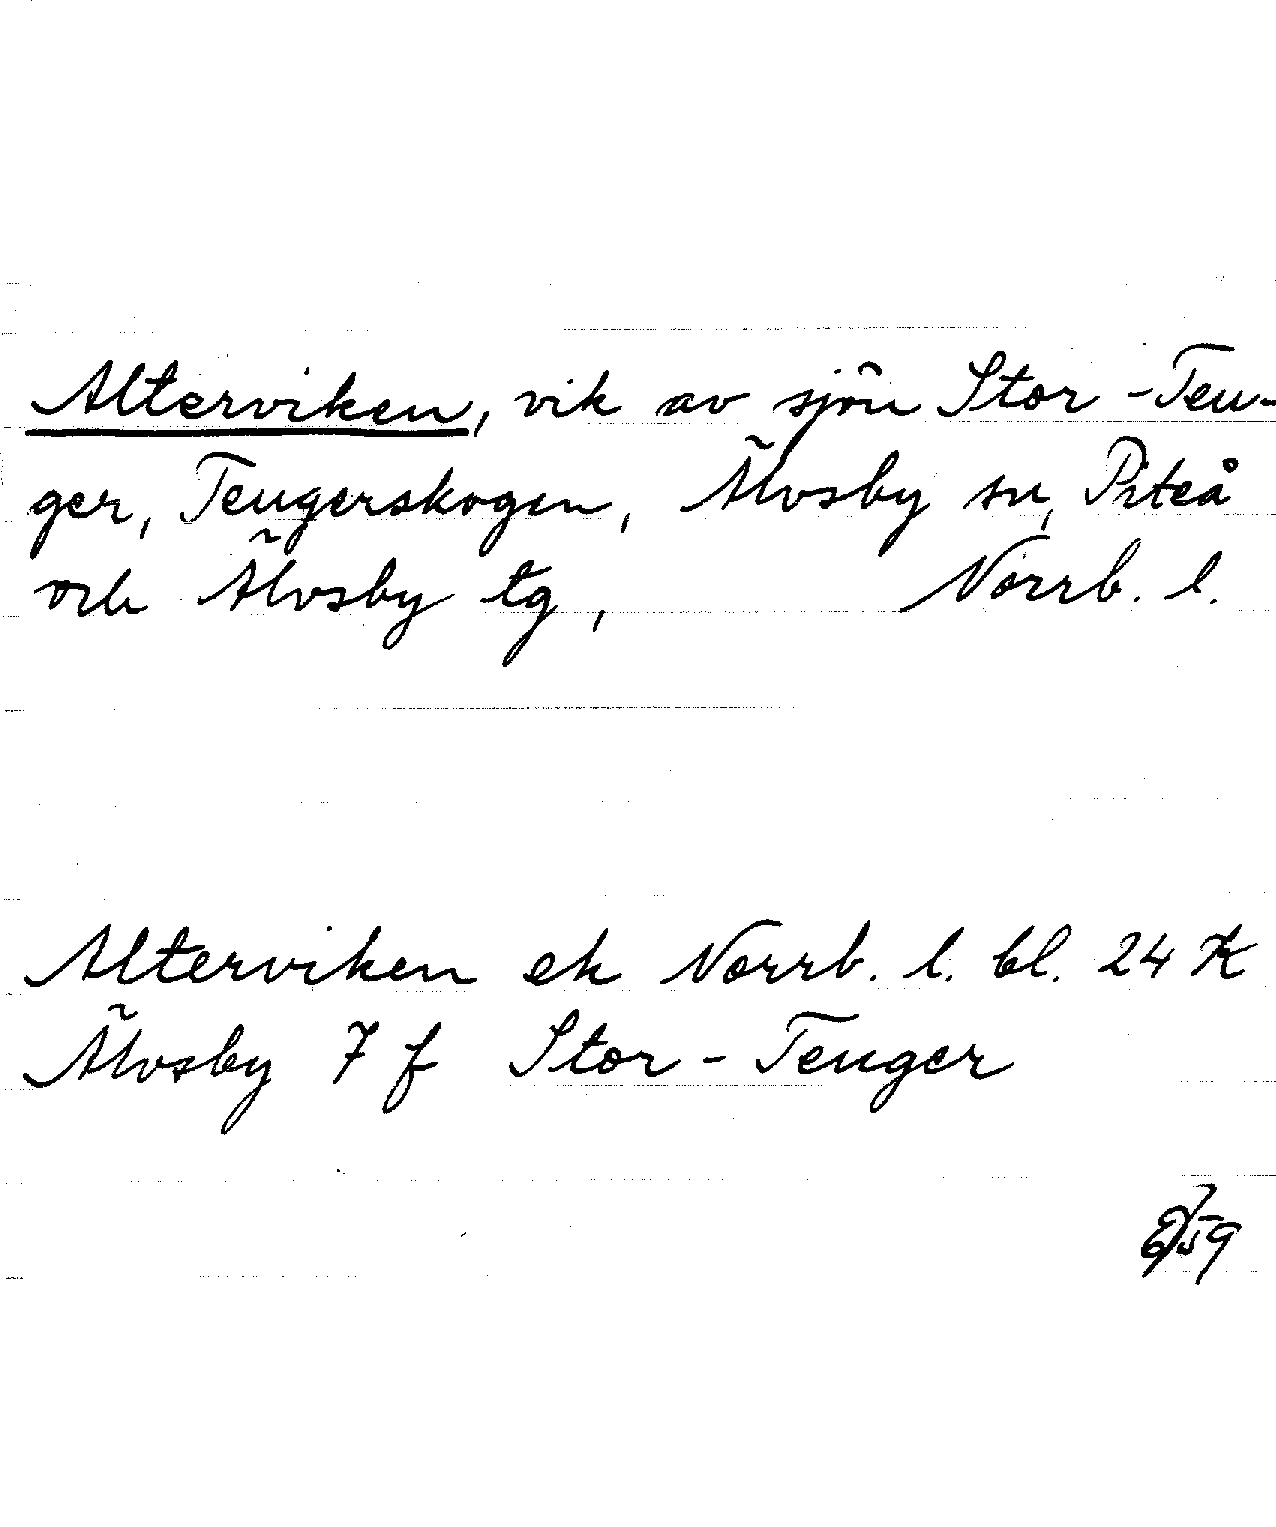 Alterviken, vik av sjön Stor-Teu-
ger, Teugerskogen, Älvsby sn, Piteå
och Älvsby tg, Norrb. l.
Alterviken ek Norrb. l. bl. 24 K
Älvsby 7 f Stor-Teuger
59